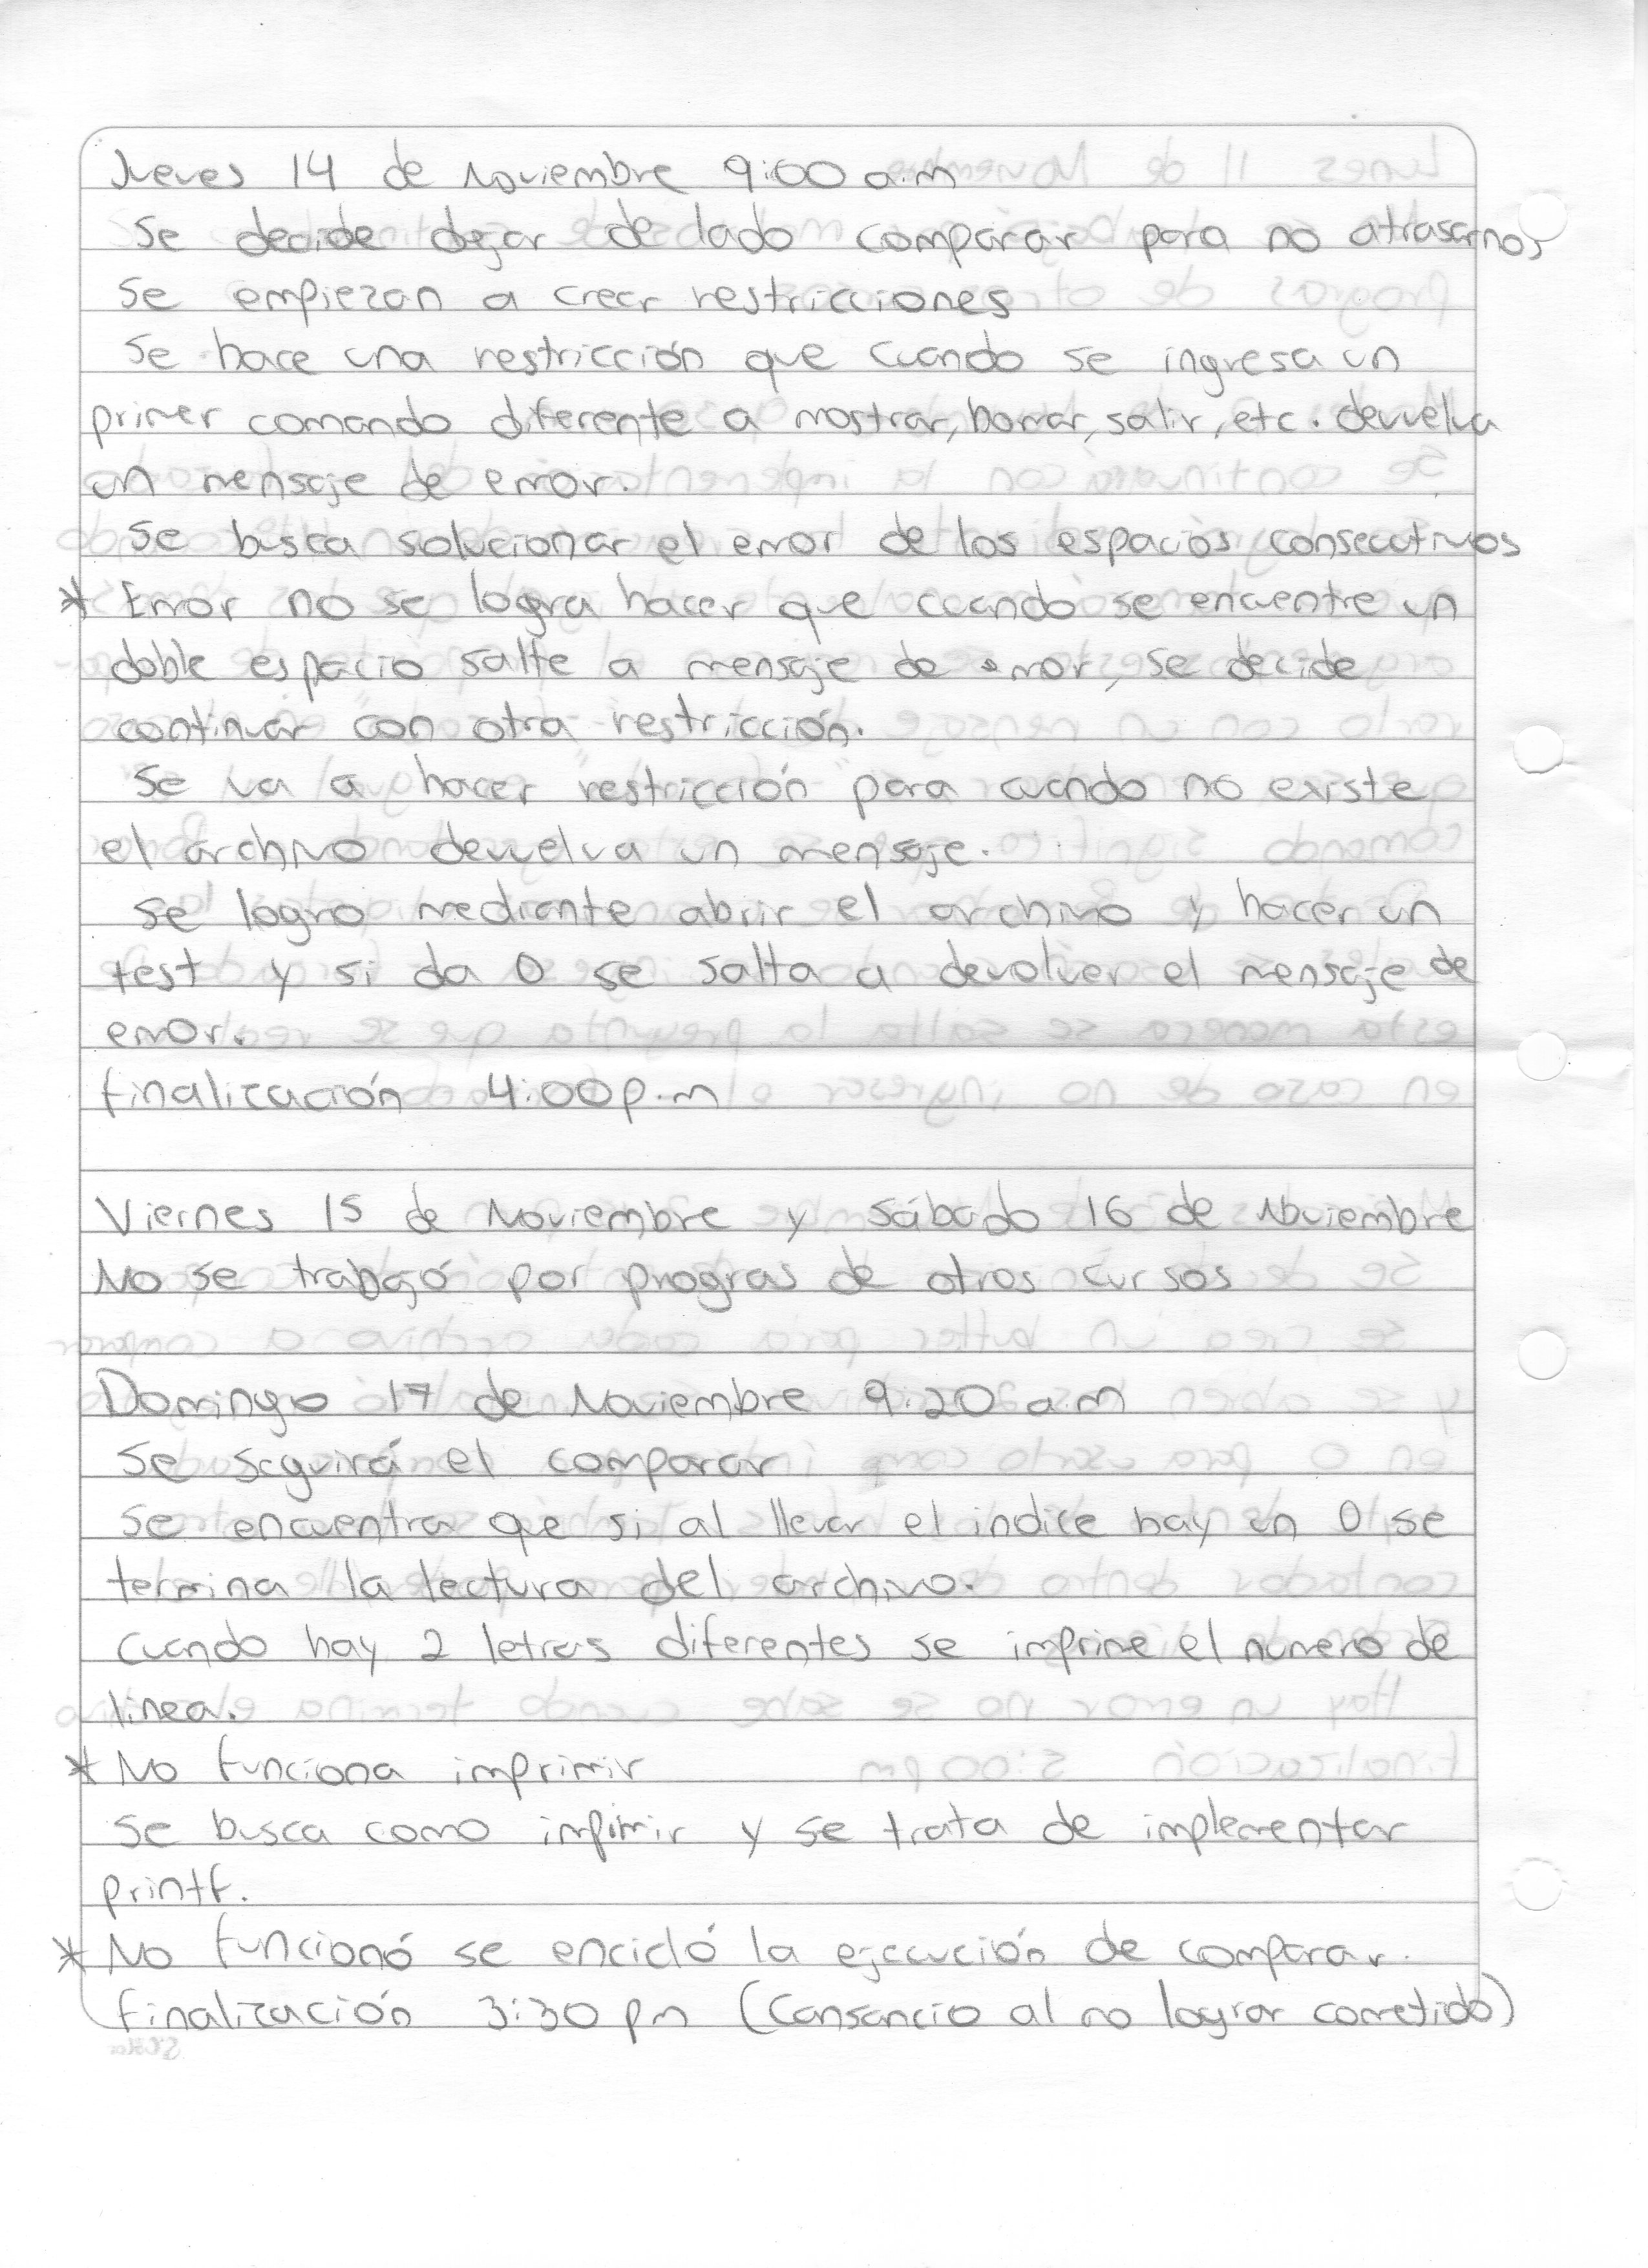 Jueves 14 de Noviembre 9:00 a.m
Se decide dejar de lado comparar para no atrasarnos
Se empiezan a crear restricciones
Se hace una restricción que cuando se ingresa un
primer comando diferente a mostrar, borrar, salir, etc. devuelva
un mensaje de error.
Se busca solucionar el error de los espacios consecutivos
* Error no se logra hacer que cuando se encuentre un
doble espacio salte a mensaje de error, se decide
continuar con otra restricción.
Se va a hacer "restricción" para cuando no existe
el archivo devuelva un mensaje.
Se logro mediante abrir el archivo y hacer un
test y si da 0 se salta a devolver el mensaje de
error.
finalización 4:00 p.m
Viernes 15 de Noviembre y Sábado 16 de Noviembre
No se trabajó por progras de otros cursos
Domingo 17 de Noviembre 9:20 a.m
Se seguirá el comparar
Se encuentra que si al llevar el indice hay un 0 se
termina la lectura del archivo.
Cuando hay 2 letras diferentes se imprime el numero de
linea.
* No funciona imprimir
Se busca como impimir y se trata de implementar
printf.
* No funcionó se encicló la ejecución de comparar.
finalización 3:30 pm (Cansancio al no lograr cometido)